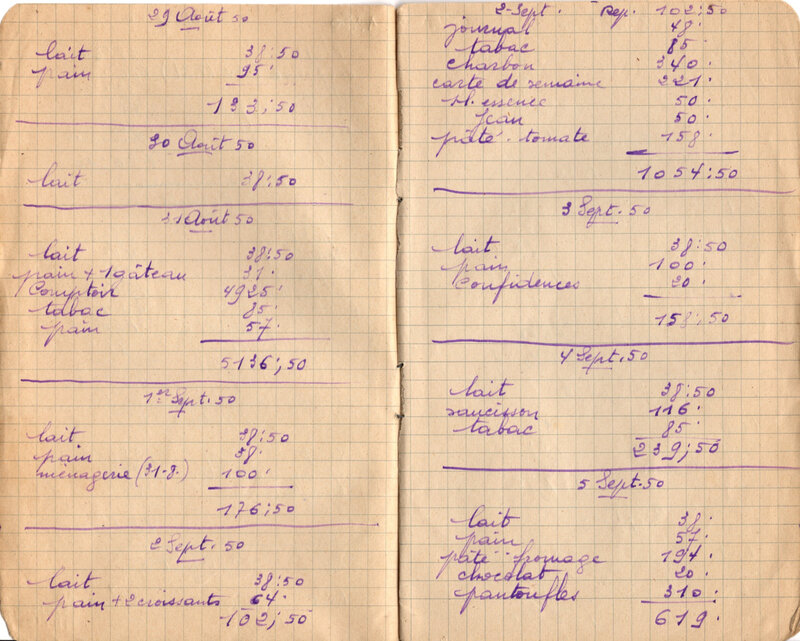 29 Août 50
lait 38;50
pain 95.
133;50
30 Août 50
lait 38;50
31 Août 50
lait 38;50
pain + 1 gâteau 31.
Comptoir 4925.
tabac 85.
pain 57.
5136;50
1er Sept. 50
lait 38;50
pain 38.
ménagerie (31-8.) 100.
176;50
2 Sept. 50
lait 38;50
pain + 2 croissants 64.
102;50
2 Sept. Rep. 102;50
journal 48.
tabac 85.
charbon 340.
carte de semaine 221.
essence 50.
Jean 50.
pâté - tomate 158.
1054;50
3 Sept. 50
lait 38;50
pain 100.
Confidences 20.
158;50
4 Sept. 50
lait 38;50
saucisson 116.
tabac 85.
239;50
5 Sept. 50
lait 38.
pain 57.
pâté - fromage 194.
chocolat 20.
pantoufles 310.
619.